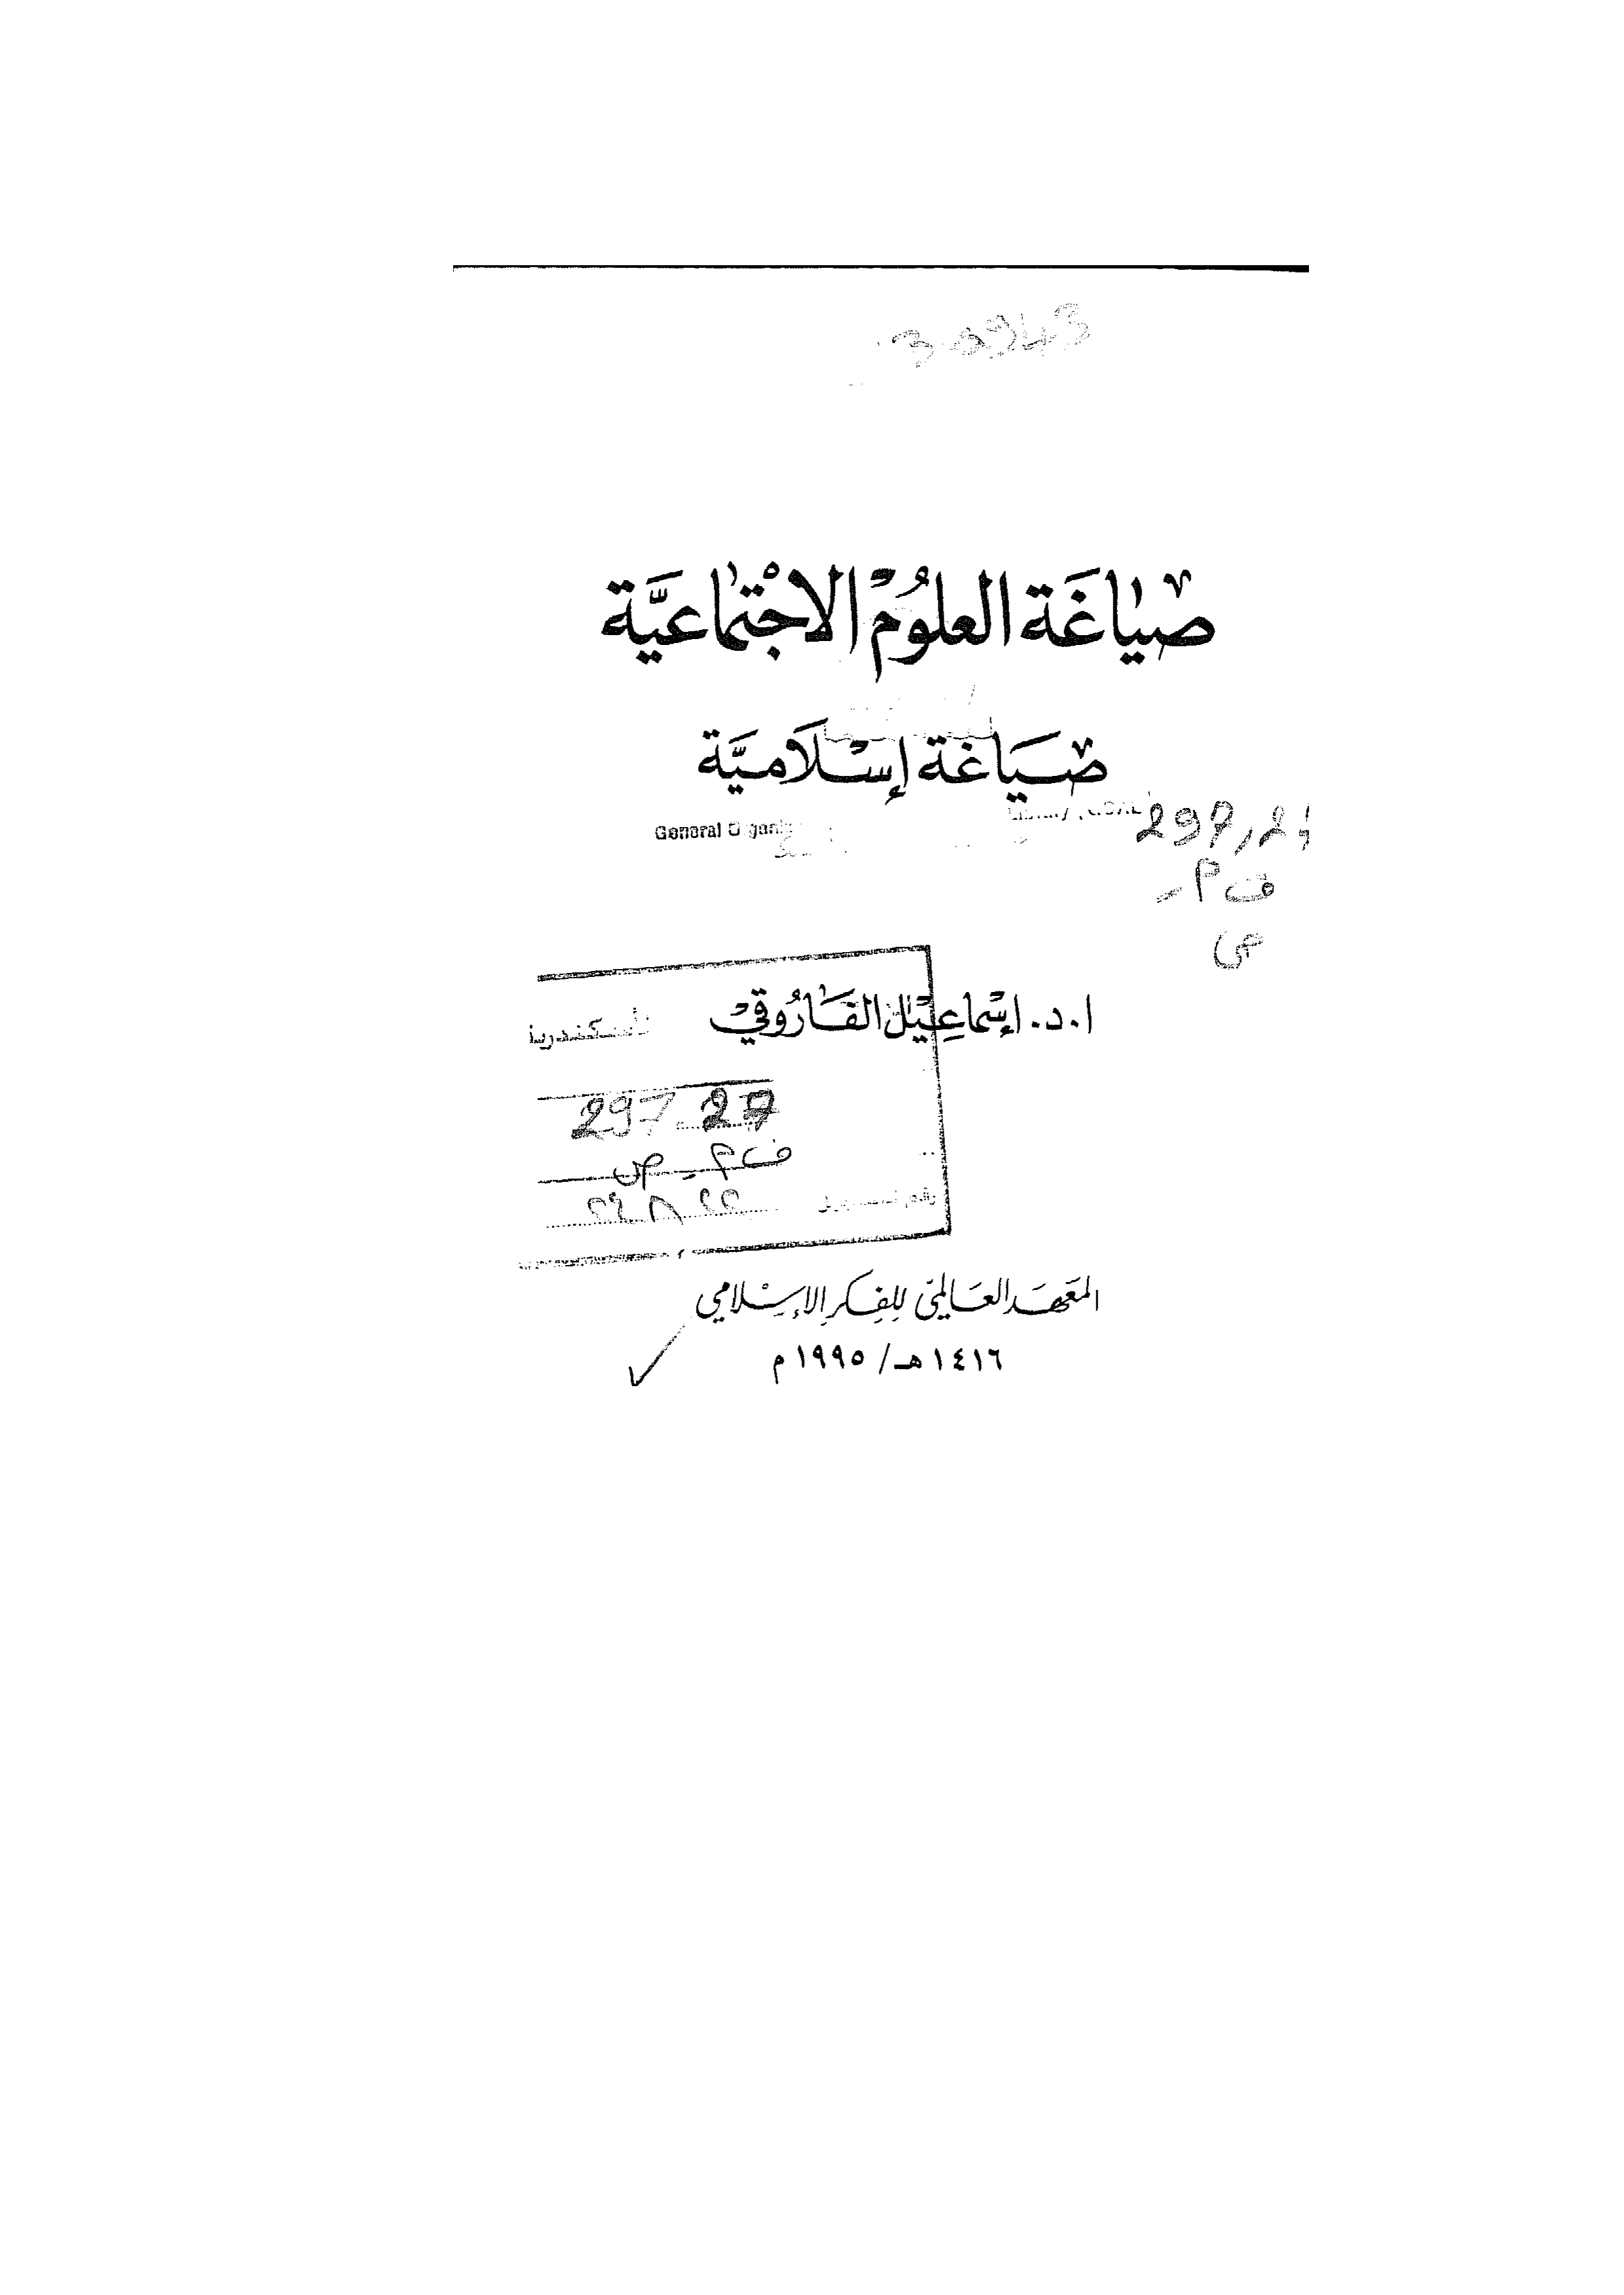 صِيَاغَة العلُوْم الاجْتِمَاعيَّة
صيَاغَة إسْلَاميَّة
General
297,2
ف م -
ص
ا. د. إسْمَاعِيْل الفَارُوقيْ
297 27
ف م - ص
رقم
المعَهَد العَالمَيّ لِلفِكرِ الإسِْلامي
١٤١٦ هـ / ١٩٩٥ م